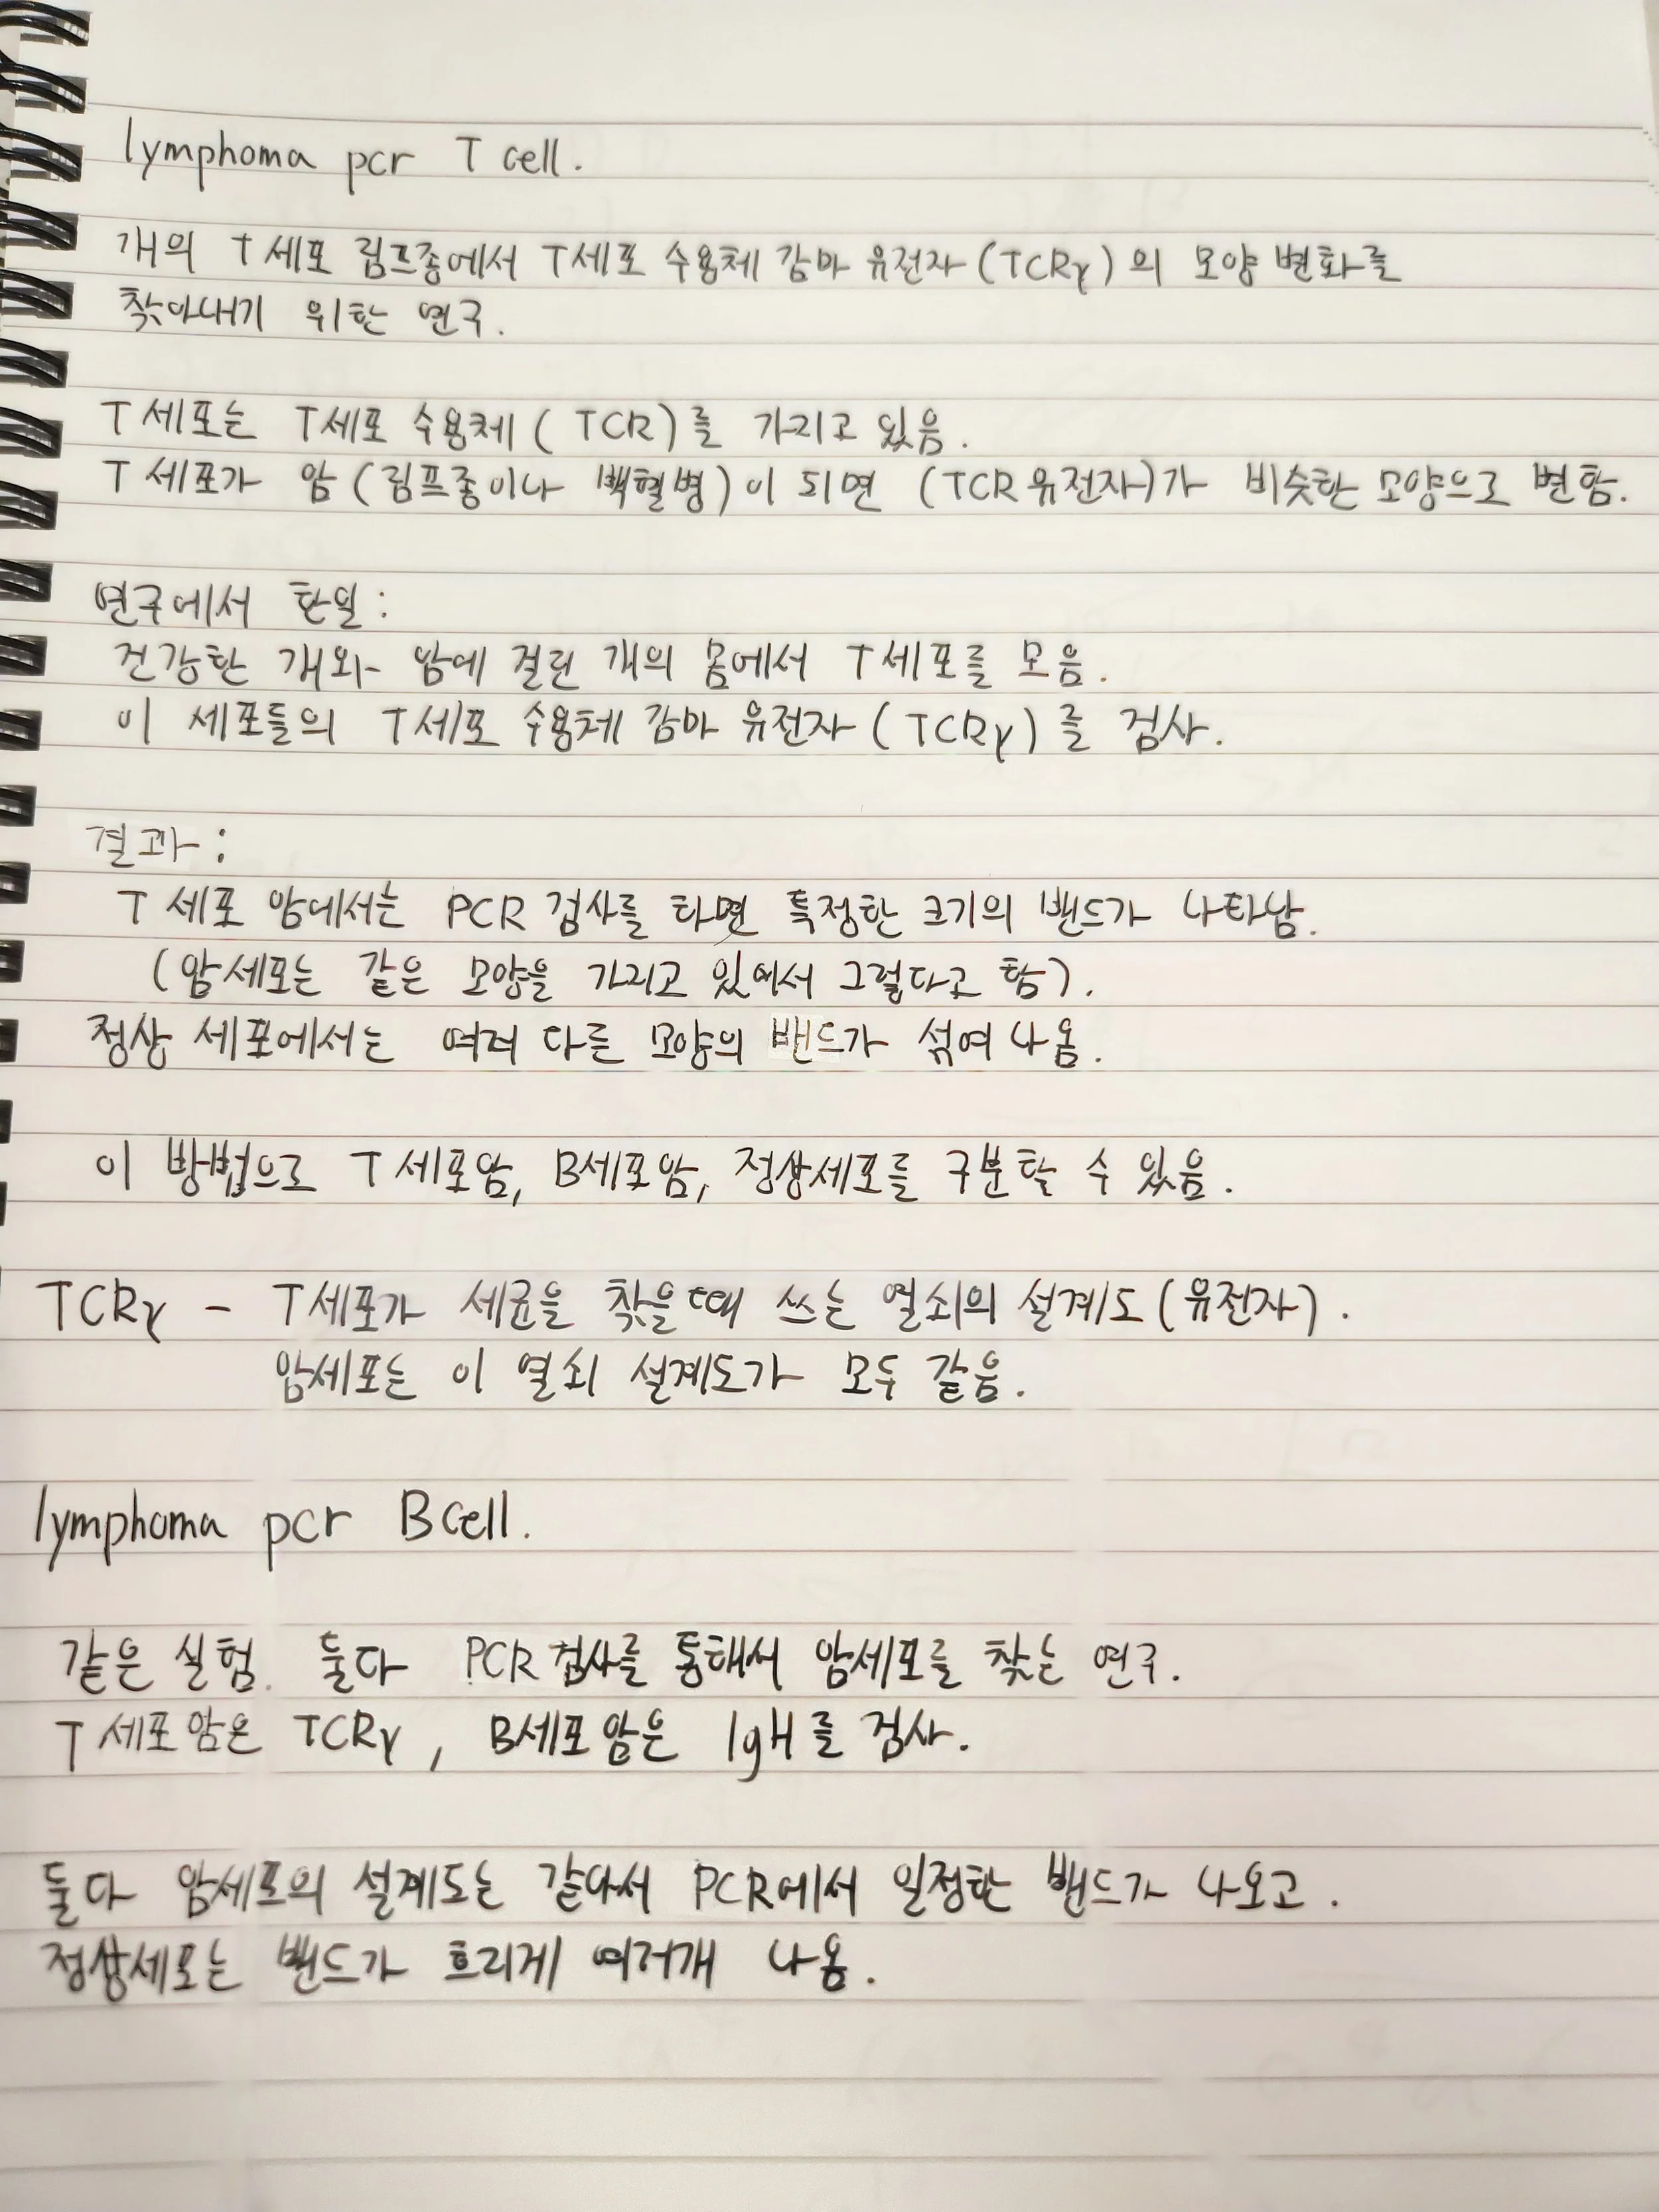 lymphoma pcr T cell.
개의 T세포 림프종에서 T세포 수용체 감마 유전자(TCRγ)의 모양 변화를
찾아내기 위한 연구.
T세포는 T세포 수용체(TCR)를 가지고 있음.
T세포가 암(림프종이나 백혈병)이 되면 (TCR유전자)가 비슷한 모양으로 변함.
연구에서 한일:
건강한 개와 암에 걸린 개의 몸에서 T세포를 모음.
이 세포들의 T세포 수용체 감마 유전자(TCRγ)를 검사.
결과:
T세포 암에서는 PCR 검사를 하면 특정한 크기의 밴드가 나타남.
(암세포는 같은 모양을 가지고 있에서 그렇다고 함).
정상 세포에서는 여러 다른 모양의 밴드가 섞여 나옴.
이 방법으로 T세포암, B세포암, 정상세포를 구분할 수 있음.
TCRγ - T세포가 세균을 찾을때 쓰는 열쇠의 설계도(유전자).
암세포는 이 열쇠 설계도가 모두 같음.
lymphoma pcr B cell.
같은 실험. 둘다 PCR 검사를 통해서 암세포를 찾는 연구.
T세포암은 TCRγ, B세포암은 IgH를 검사.
둘다 암세포의 설계도는 같아서 PCR에서 일정한 밴드가 나오고.
정상세포는 밴드가 흐리게 여러개 나옴.